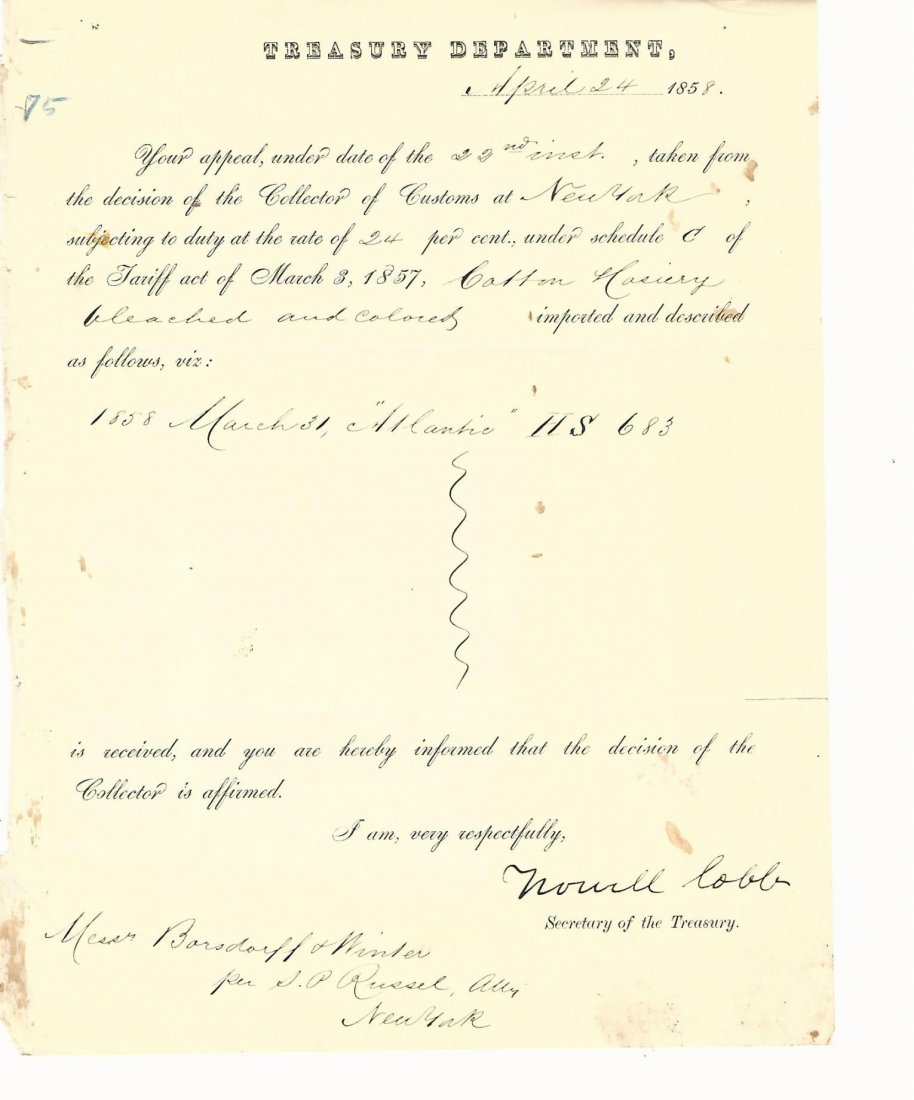 TREASURY DEPARTMENT,
April 24 1858.
75
Your appeal, under date of the 22nd inst., taken from
the decision of the Collector of Customs at New York,
subjecting to duty at the rate of 24 per cent., under schedule C of
the Tariff act of March 3, 1857, Cotton Hosiery
bleached and colored imported and described
as follows, viz:
1858 March 31, "Atlantic" HS 683
is received, and you are hereby informed that the decision of the
Collector is affirmed.
I am, very respectfully,
Howell Cobb
Secretary of the Treasury.
Messrs Borsdorff & Winter
per S. P. Russel, Atty
New York